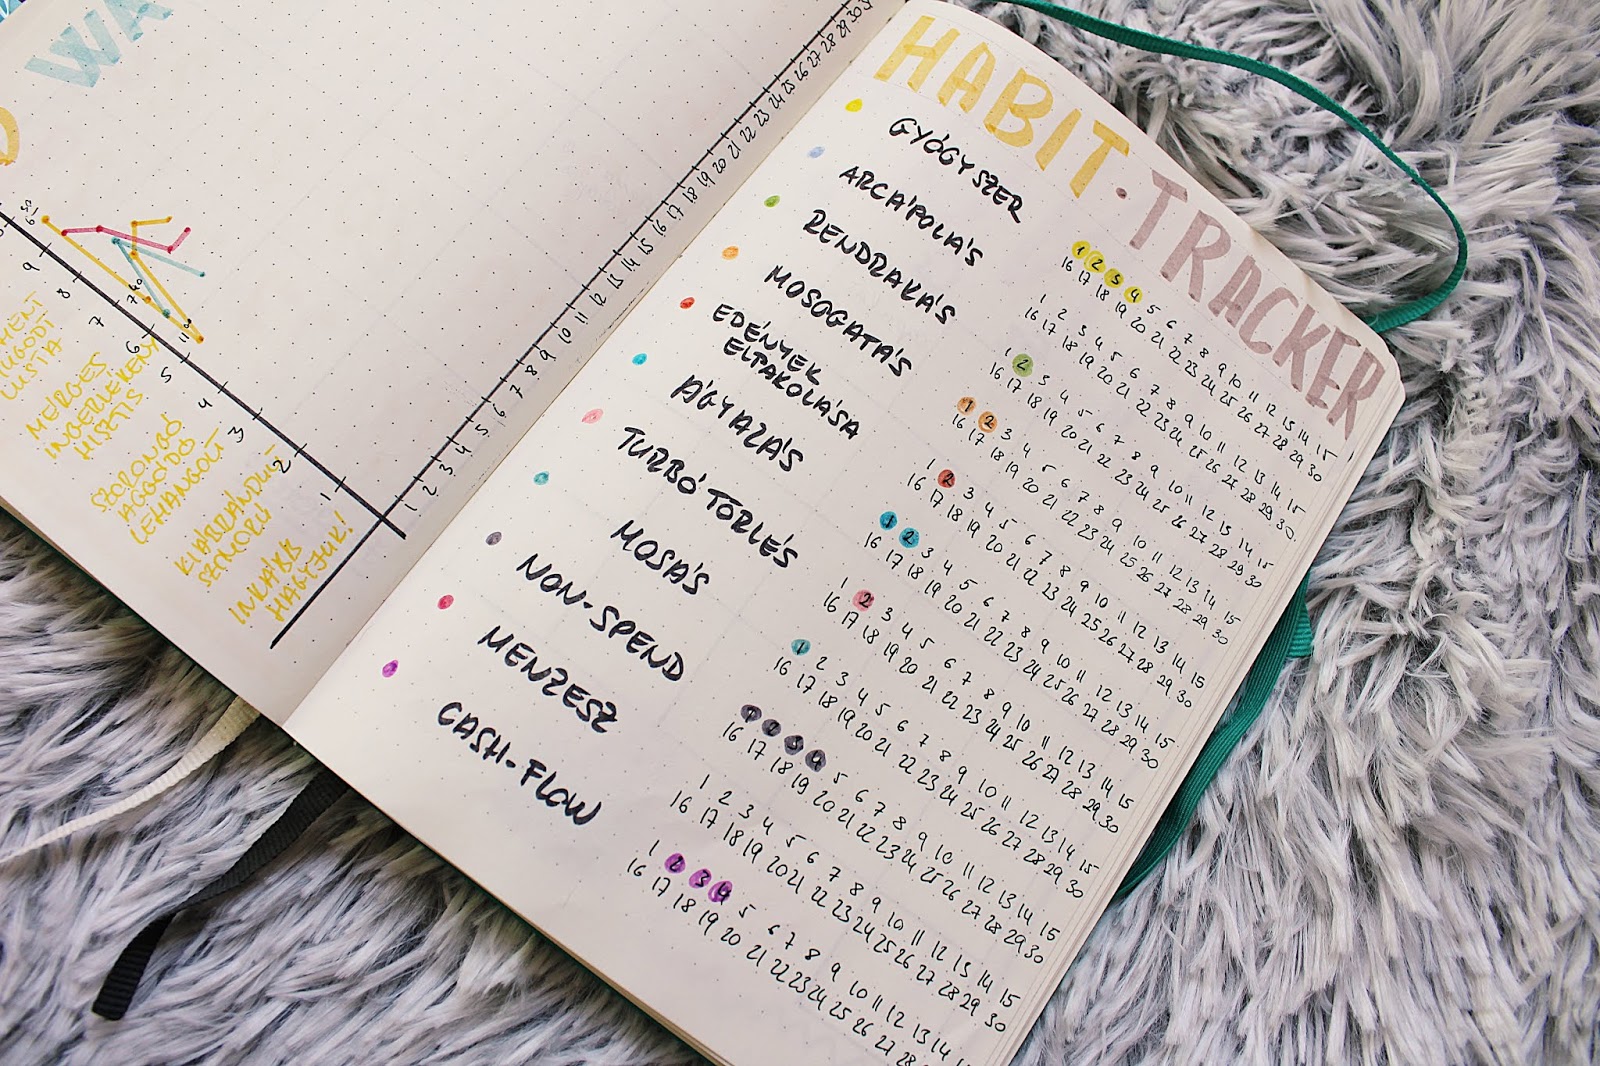 WA
50
6
9
8
7
6
5
4
3
2
1
MÉRGES
INGERLÉKENY
HISZTIS
SZORONGÓ
AGGÓDÓ
LEHANGOLT
KIÁBRÁNDULT
SZOMORÚ
INKÁBB
HAGYJUK!
1 2 3 4 5 6 7 8 9 10 11 12 13 14 15 16 17 18 19 20 21 22 23 24 25 26 27 28 29 30 31
HABIT · TRACKER
GYÓGYSZER
1 2 3 4 5 6 7 8 9 10 11 12 13 14 15
16 17 18 19 20 21 22 23 24 25 26 27 28 29 30
ARCÁPOLÁS
1 2 3 4 5 6 7 8 9 10 11 12 13 14 15
16 17 18 19 20 21 22 23 24 25 26 27 28 29 30
RENDRAKÁS
1 2 3 4 5 6 7 8 9 10 11 12 13 14 15
16 17 18 19 20 21 22 23 24 25 26 27 28 29 30
MOSOGATÁS
1 2 3 4 5 6 7 8 9 10 11 12 13 14 15
16 17 18 19 20 21 22 23 24 25 26 27 28 29 30
EDÉNYEK
ELPAKOLÁSA
1 2 3 4 5 6 7 8 9 10 11 12 13 14 15
16 17 18 19 20 21 22 23 24 25 26 27 28 29 30
ÁGYAZÁS
1 2 3 4 5 6 7 8 9 10 11 12 13 14 15
16 17 18 19 20 21 22 23 24 25 26 27 28 29 30
TURBÓ TÖRLÉS
1 2 3 4 5 6 7 8 9 10 11 12 13 14 15
16 17 18 19 20 21 22 23 24 25 26 27 28 29 30
MOSÁS
1 2 3 4 5 6 7 8 9 10 11 12 13 14 15
16 17 18 19 20 21 22 23 24 25 26 27 28 29 30
NON-SPEND
1 2 3 4 5 6 7 8 9 10 11 12 13 14 15
16 17 18 19 20 21 22 23 24 25 26 27 28 29 30
MENZESZ
1 2 3 4 5 6 7 8 9 10 11 12 13 14 15
16 17 18 19 20 21 22 23 24 25 26 27 28 29 30
CASH-FLOW
1 2 3 4 5 6 7 8 9 10 11 12 13 14 15
16 17 18 19 20 21 22 23 24 25 26 27 28